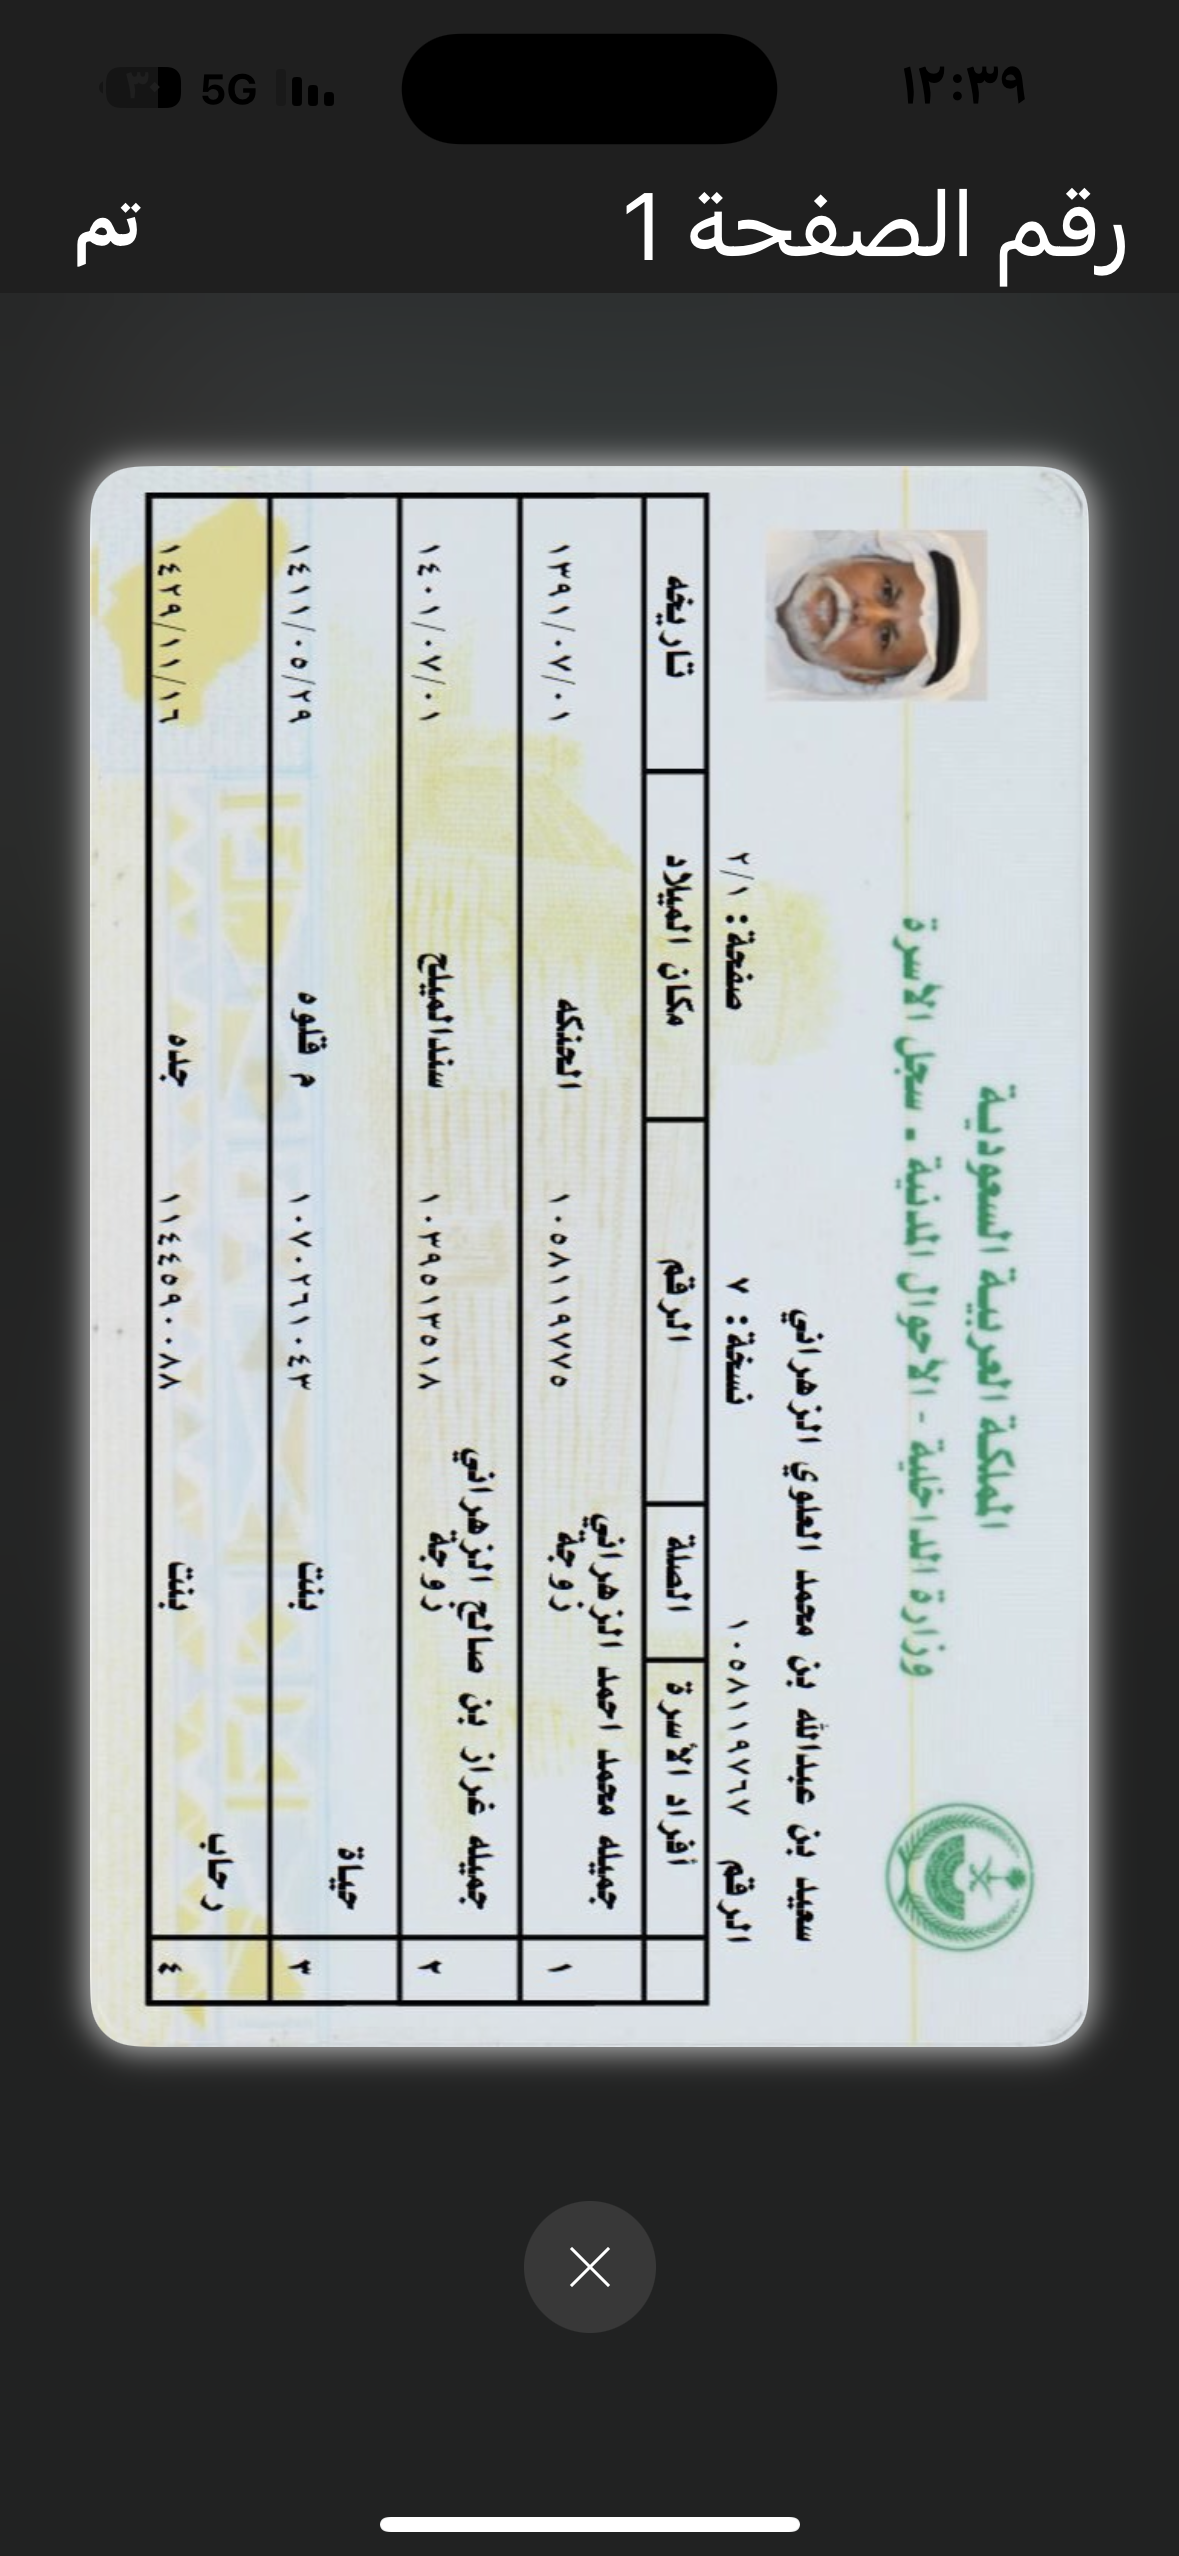 ١٢:٣٩
5G
٣٠
رقم الصفحة 1
تم
المملكة العربية السعودية
وزارة الداخلية - الأحوال المدنية - سجل الأسرة
سعيد بن عبدالله بن محمد العلوي الزهراني
الرقم ١٠٥٨١١٩٧٦٧ نسخة: ٧ صفحة: ٢/١
أفراد الأسرة الصلة الرقم مكان الميلاد تاريخه
١ جميله محمد احمد الزهراني
زوجة ١٠٥٨١١٩٧٧٥ الحنكه ١٣٩١/٠٧/٠١
٢ جميله غراز بن صالح الزهراني
زوجة ١٠٣٩٥١٣٥١٨ سندالميلح ١٤٠١/٠٧/٠١
٣ حياة
بنت ١٠٧٠٢٦١٠٤٣ م قلوه ١٤١١/٠٥/٢٩
٤ رحاب
بنت ١١٤٤٥٩٠٠٨٨ جده ١٤٢٩/١١/١٦